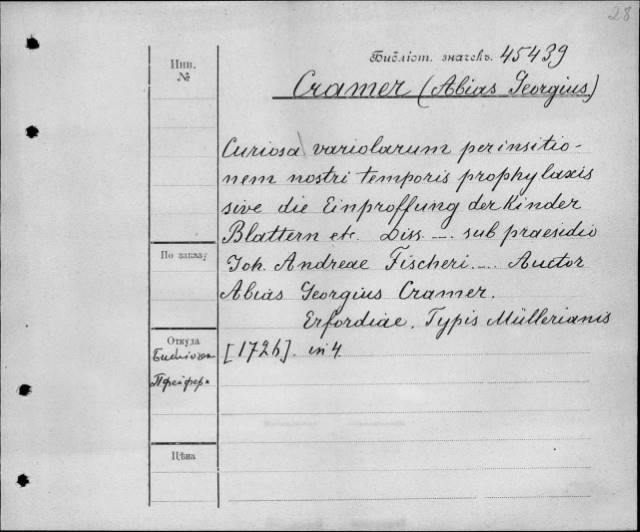 28
Инв.
№
Библіот. значекъ. 45439
Cramer (Abias Georgius)
Curiosa variolarum per insitio-
nem nostri temporis prophylaxis
sive die Einproffung der Kinder
Blattern etc. Diss. .... sub praesidio
По заказу
Joh. Andreae Fischeri .... Auctor
Abias Georgius Cramer.
Erfordiae. Typis Müllerianis
Откуда
[172 ]. in 4
Пфейфер
Цѣна